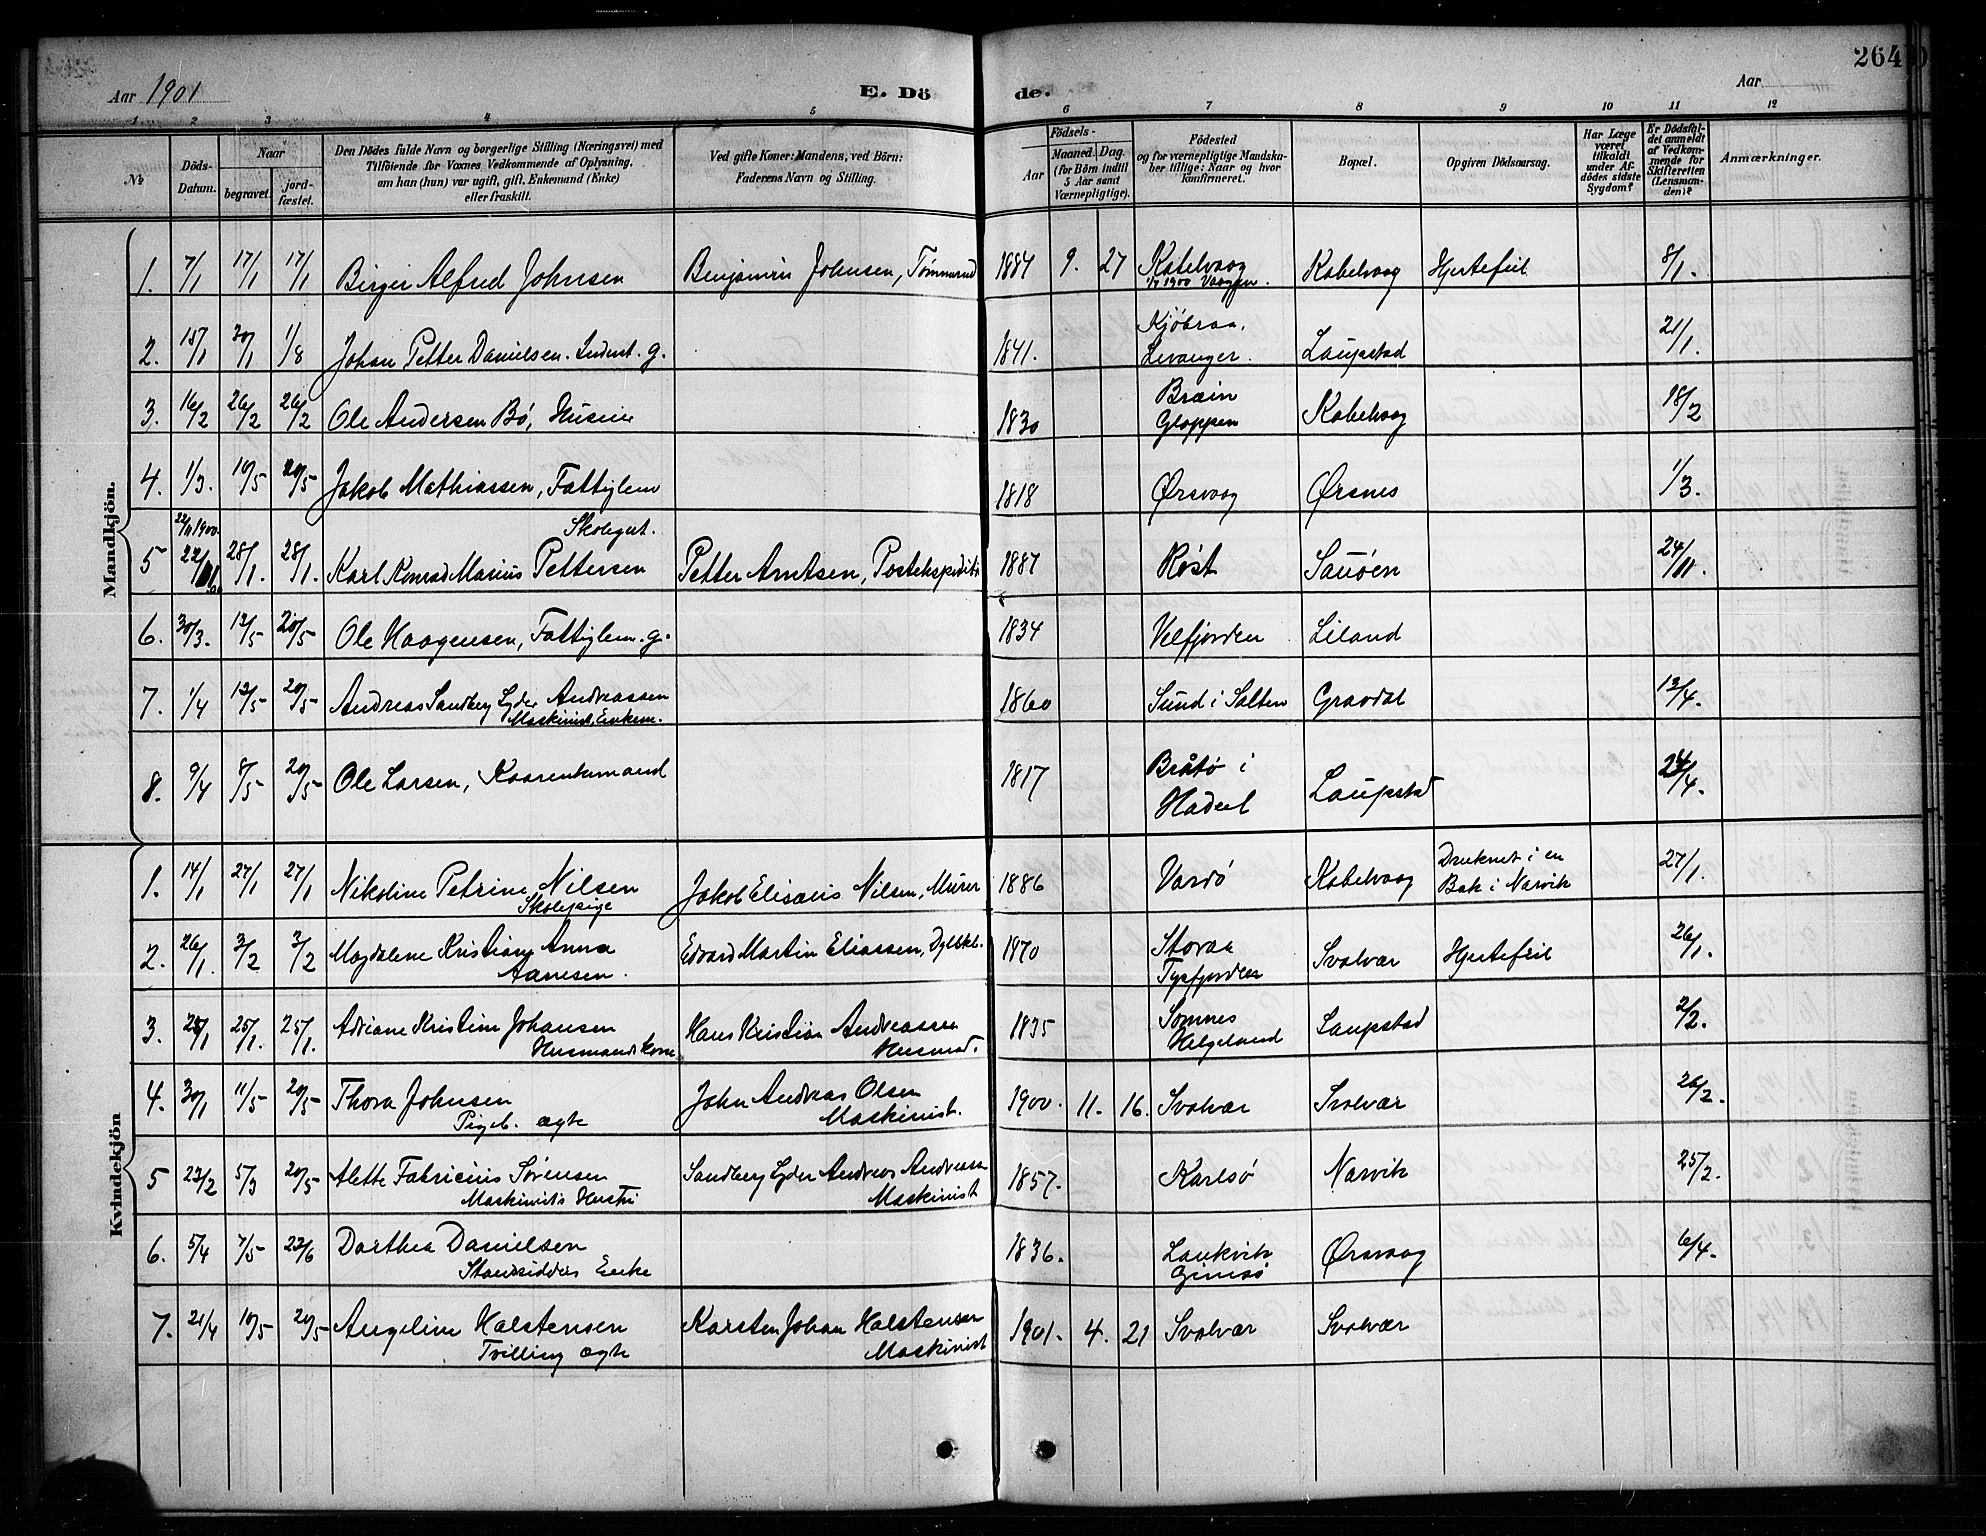 Aar 1901
E. Dö
de.
Aar
264
1 2 3 4 5 6 7 8 9 10 11 12
№
Döds-
Datum.
Naar
begravet.
jord-
fæstet.
Den Dödes fulde Navn og borgerlige Stilling (Næringsvei) med
Tilföiende for Voxnes Vedkommende af Oplysning,
om han (hun) var ugift, gift, Enkemand (Enke)
eller fraskilt.
Ved gifte Koner: Mandens, ved Börn:
Faderens Navn og Stilling.
Födsels-
Aar
Maaned. Dag.
(for Börn indtil
5 Aar samt
Værnepligtige).
Födested
og for værnepligtige Mandska-
ber tillige: Naar og hvor
konfirmeret.
Bopæl.
Opgiven Dödsaarsag.
Har Læge
været
tilkaldt
under Af-
dödes sidste
Sygdom?
Er Dödsfal-
det anmeldt
af Vedkom-
mende for
Skifteretten
(Lensman-
den)?
Anmærkninger.
Mandkjön.
1. 7/1 17/1 17/1 Birger Alfred Johnsen Benjamin Johnsen, Tømmermd 1884 9. 27 Kabelvaag Kabelvaag Hjertefeil 8/1.
1/7 1900 Vaagan.
2. 15/1 30/1 1/8 Johan Petter Danielsen. Inderst. g. 1841. Levanger. Laupstad 21/1.
3. 16/2 26/2 26/2 Ole Andersen Bö, Huseier 1830 Gloppen Kabelvaag 18/2
4. 1/3. 19/5 20/5 Jakob Mathiassen, Fattiglem 1818 Ørsvaag Ørsnes 1/3.
22/11 1900. Skolegut.
5 28/1. 28/1. Karl Konrad Marius Pettersen Petter Arntsen, Postekspeditør 1887 Røst Sauøen 24/11.
6. 30/3. 12/5 20/5 Ole Haagensen, Fattiglem. g. 1834 Velfjorden Liland
7. 1/4 12/5 20/5 Andreas Sandberg Lyder Andreassen 1860 Sund i Salten Gravdal 13/4.
Maskinist, Enkem.
8. 9/4 8/5 20/5 Ole Larsen, Kaarenkemand 1817 Bråtø i
Hadsel Laupstad 24/4.
Kvindekjön
1. 14/1 27/1 27/1 Nikoline Petrine Nilsen Jakob Elisæus Nilsen, Murer 1886 Vardö Kabelvaag Druknet i en 27/1.
Skolepige Bæk i Narvik
2. 26/1. 3/2 3/2 Magdalene Kristiane Anna Edvard Martin Eliassen, 1870 Storaa Svolvær Hjertefeil 26/1.
Aanesen. Tysfjorden
3. 25/1. 25/1. Adriane Kristine Johansen Hans Kristian Andreassen 1835 Sømnes Laupstad 2/2.
Husmandskone Husmd. Helgeland
4. 30/1 11/5 20/5 Thora Johnsen John Andreas Olsen 1900. 11. 16. Svolvær Svolvær 26/2.
Pigeb. ægte Maskinist.
5 23/2 5/3 20/5 Alette Fabricius Sørensen Sandberg Lyder Andreas Andreassen 1857. Karlsö Narvik 25/2.
Maskinists Hustru Maskinist
6. 5/4 7/5 23/6 Dorthea Danielsen 1836. Laukvik Ørsvaag 6/4.
Strandsidders Enke Gimsö
7. 21/4 19/5 20/5 Angeline Halstensen Karsten Johan Halstensen 1901. 4. 21 Svolvær Svolvær
Tvilling ægte Maskinist